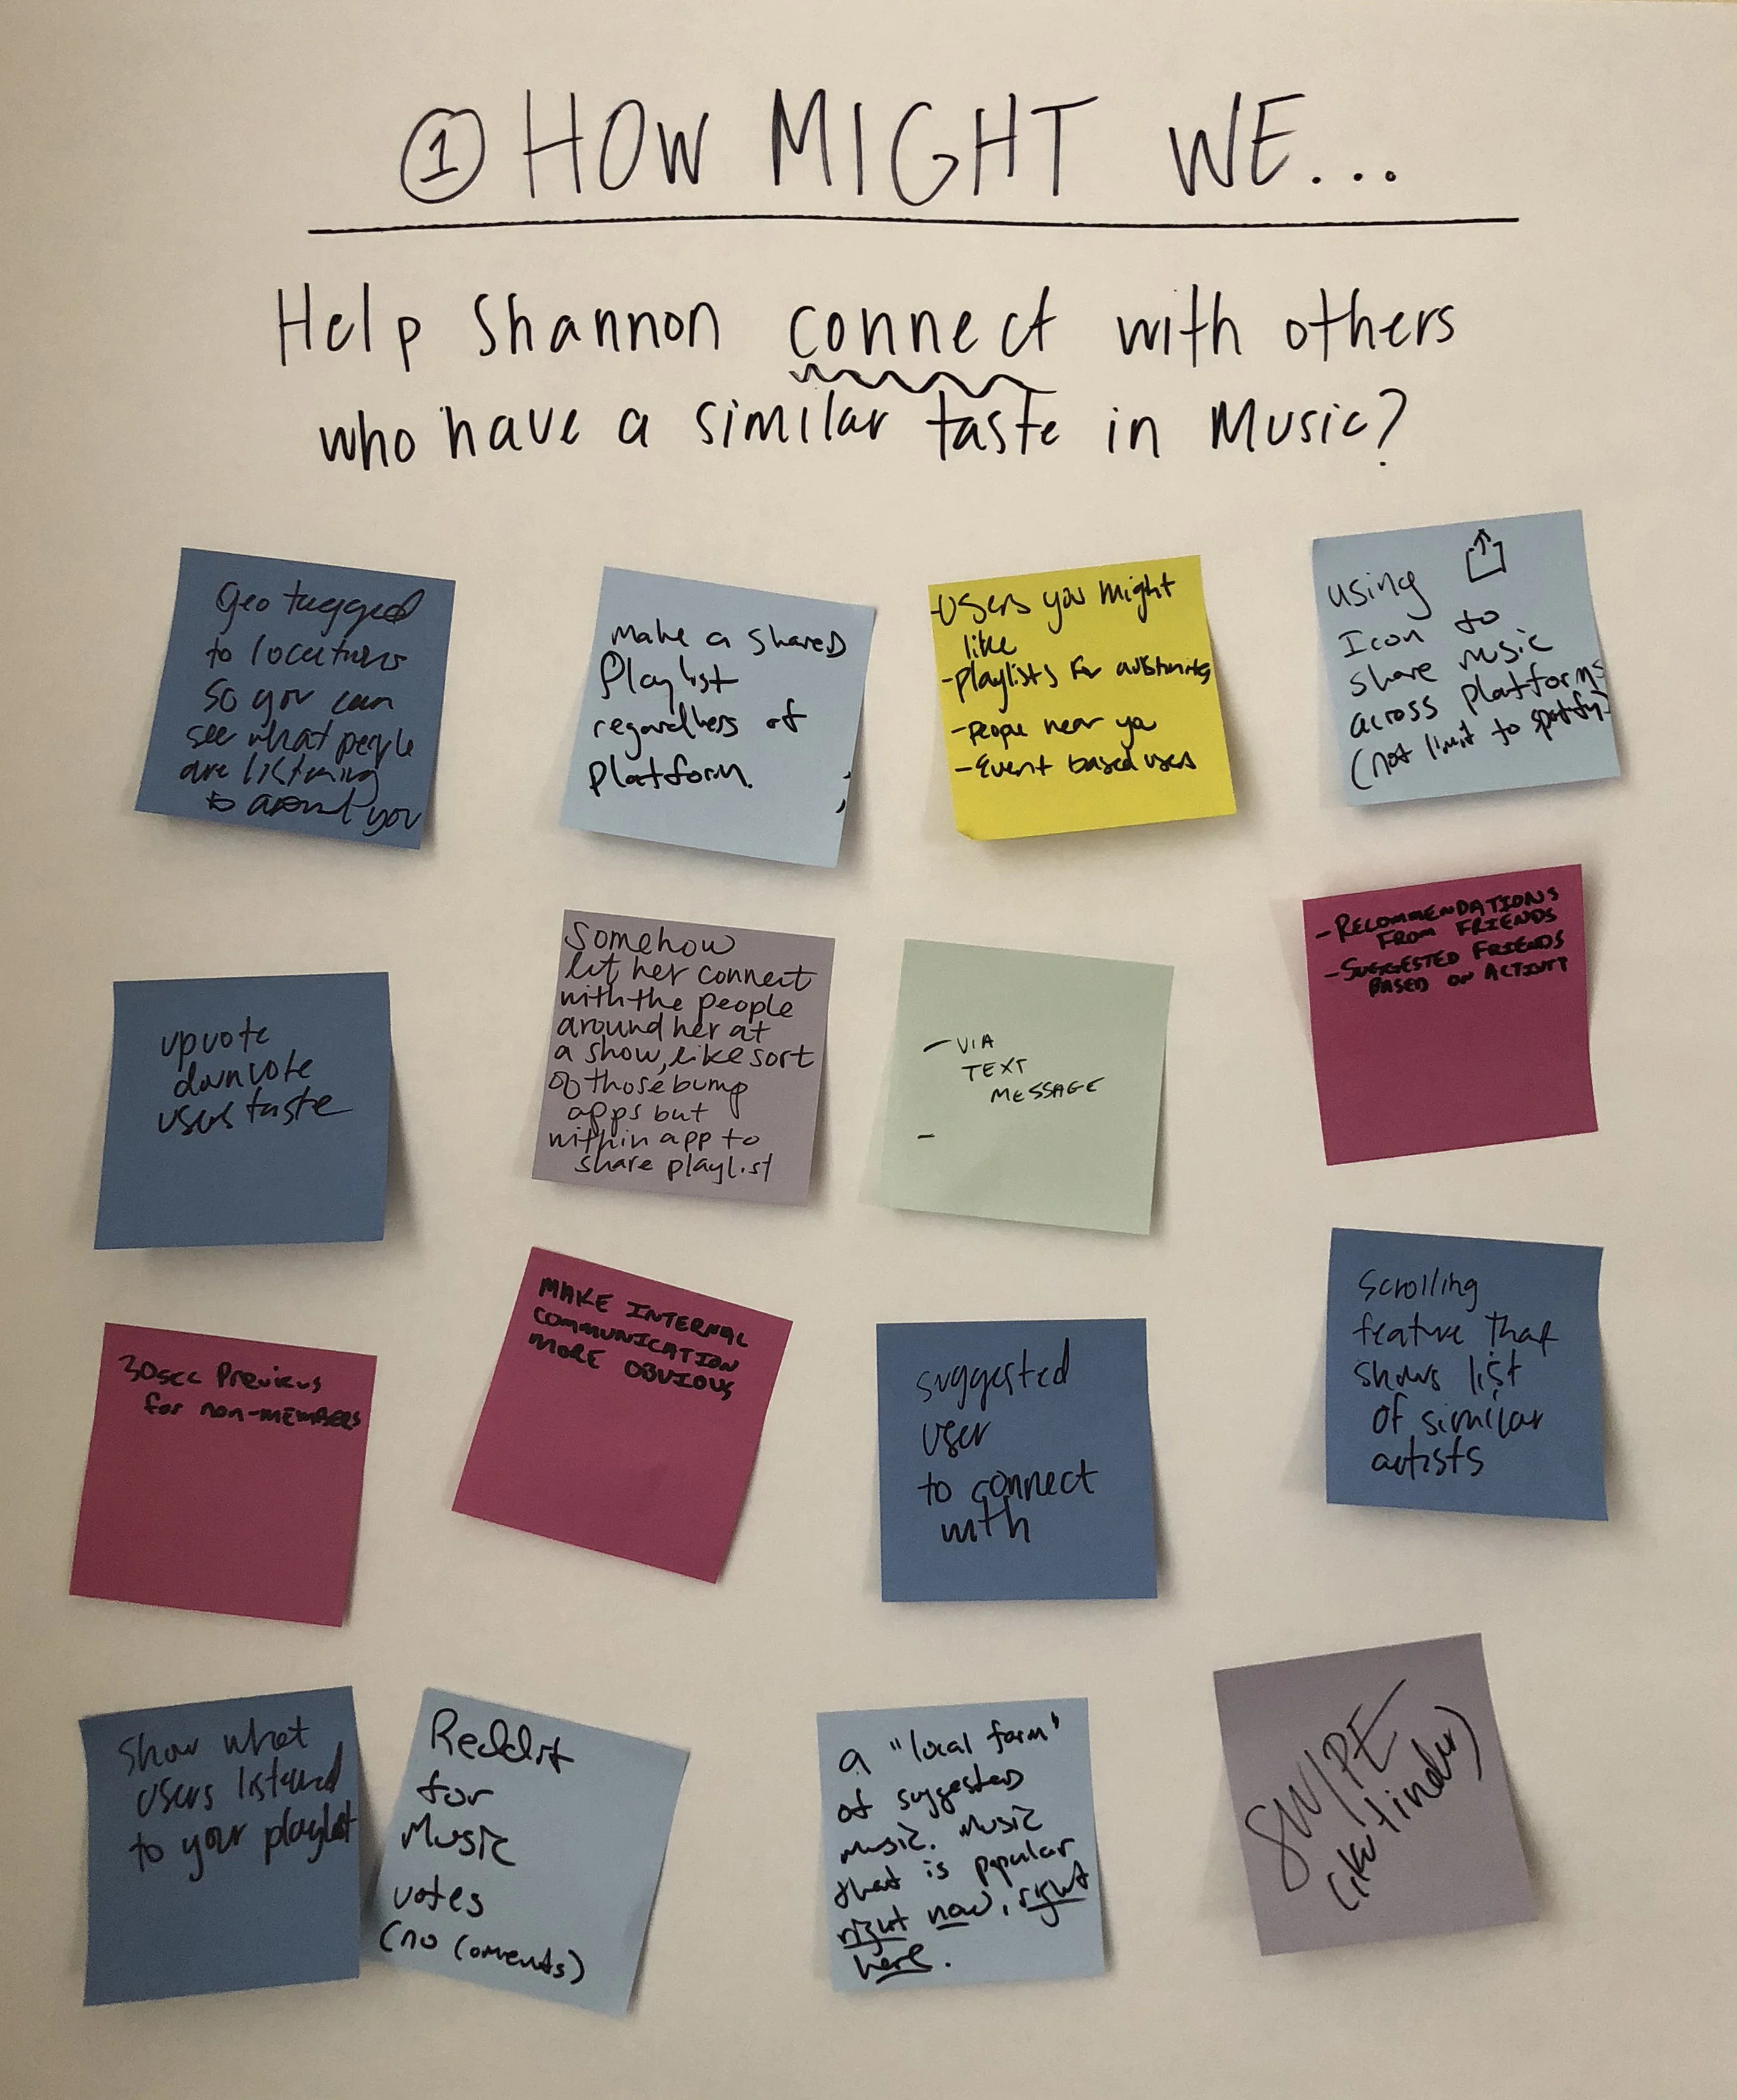 ① HOW MIGHT WE...
Help Shannon connect with others
who have a similar taste in Music?
Geo tagged
to locations
so you can
see what people
are listening
to around you
make a shared
Playlist
regardless of
platform.
-Users you might
like
-playlists for
-People near you
-Event based users
using
Icon to
share music
across platforms
(not limit to spotify)
upvote
downvote
users taste
Somehow
let her connect
with the people
around her at
a show, like sort
of those bump
apps but
within app to
share playlist
- VIA
TEXT
MESSAGE
-
- RECOMMENDATIONS
FROM FRIENDS
- SUGGESTED FRIENDS
BASED ON ACTIVITY
30sec Previews
for non-MEMBERS
MAKE INTERNAL
COMMUNICATION
MORE OBVIOUS
suggested
user
to connect
with
Scrolling
feature that
shows list
of similar
artists
Show what
users listened
to your playlist
Reddit
for
Music
votes
(no Comments)
a "local farm"
of suggested
music. Music
that is popular
right now, right
here.
SWIPE
(like tinder)